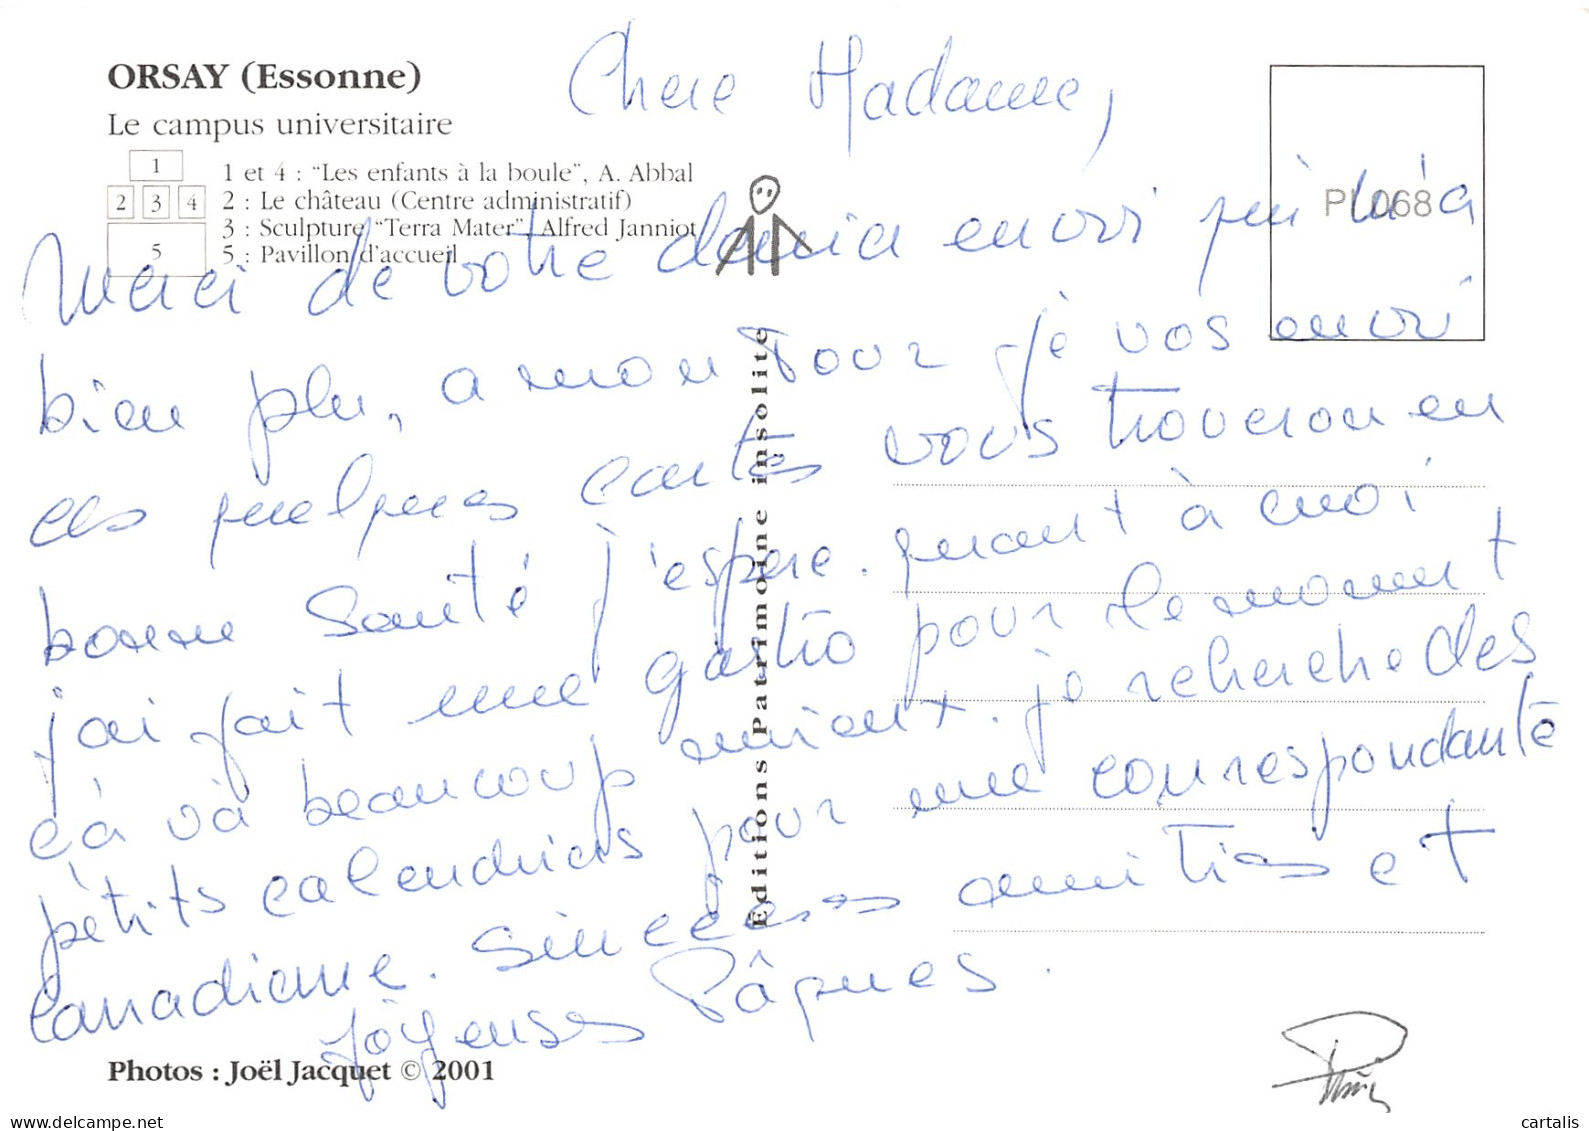 ORSAY (Essonne)
Le campus universitaire
1
2 3 4
5
1 et 4 : "Les enfants à la boule", A. Abbal
2 : Le château (Centre administratif)
3 : Sculpture "Terra Mater" Alfred Janniot
5 : Pavillon d'accueil
PI 068
Chere Madame,
Merci de votre envoi qui m'a
bien plu, a mon tour je vos envoi
ces quelques cartes vous trouveron en
bonne Santé j'espere. quant à moi
j'ai fait une gastro pour le moment
ça và beaucoup mieux. je recherche des
pétits calendriers pour une correspondante
Canadienne. Sincères amitiés et
Joyeuses Pâques.
Editions Patrimoine insolite
Photos : Joël Jacquet © 2001
www.delcampe.net
cartalis